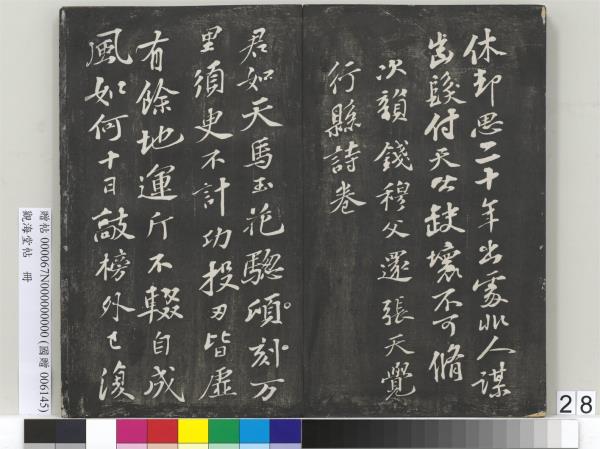 休却思二十年出處非人謀
齒髮付天公缺壞不可脩
次韻錢穆父還張天覺
行縣詩卷
君如天馬玉花驄頃刻万
里須臾不計功投刃皆虛
有餘地運斤不輟自成
風如何十日敲榜外已復
贈帖 000067N000000000 (國贈 006145)
觀海堂帖 冊
28